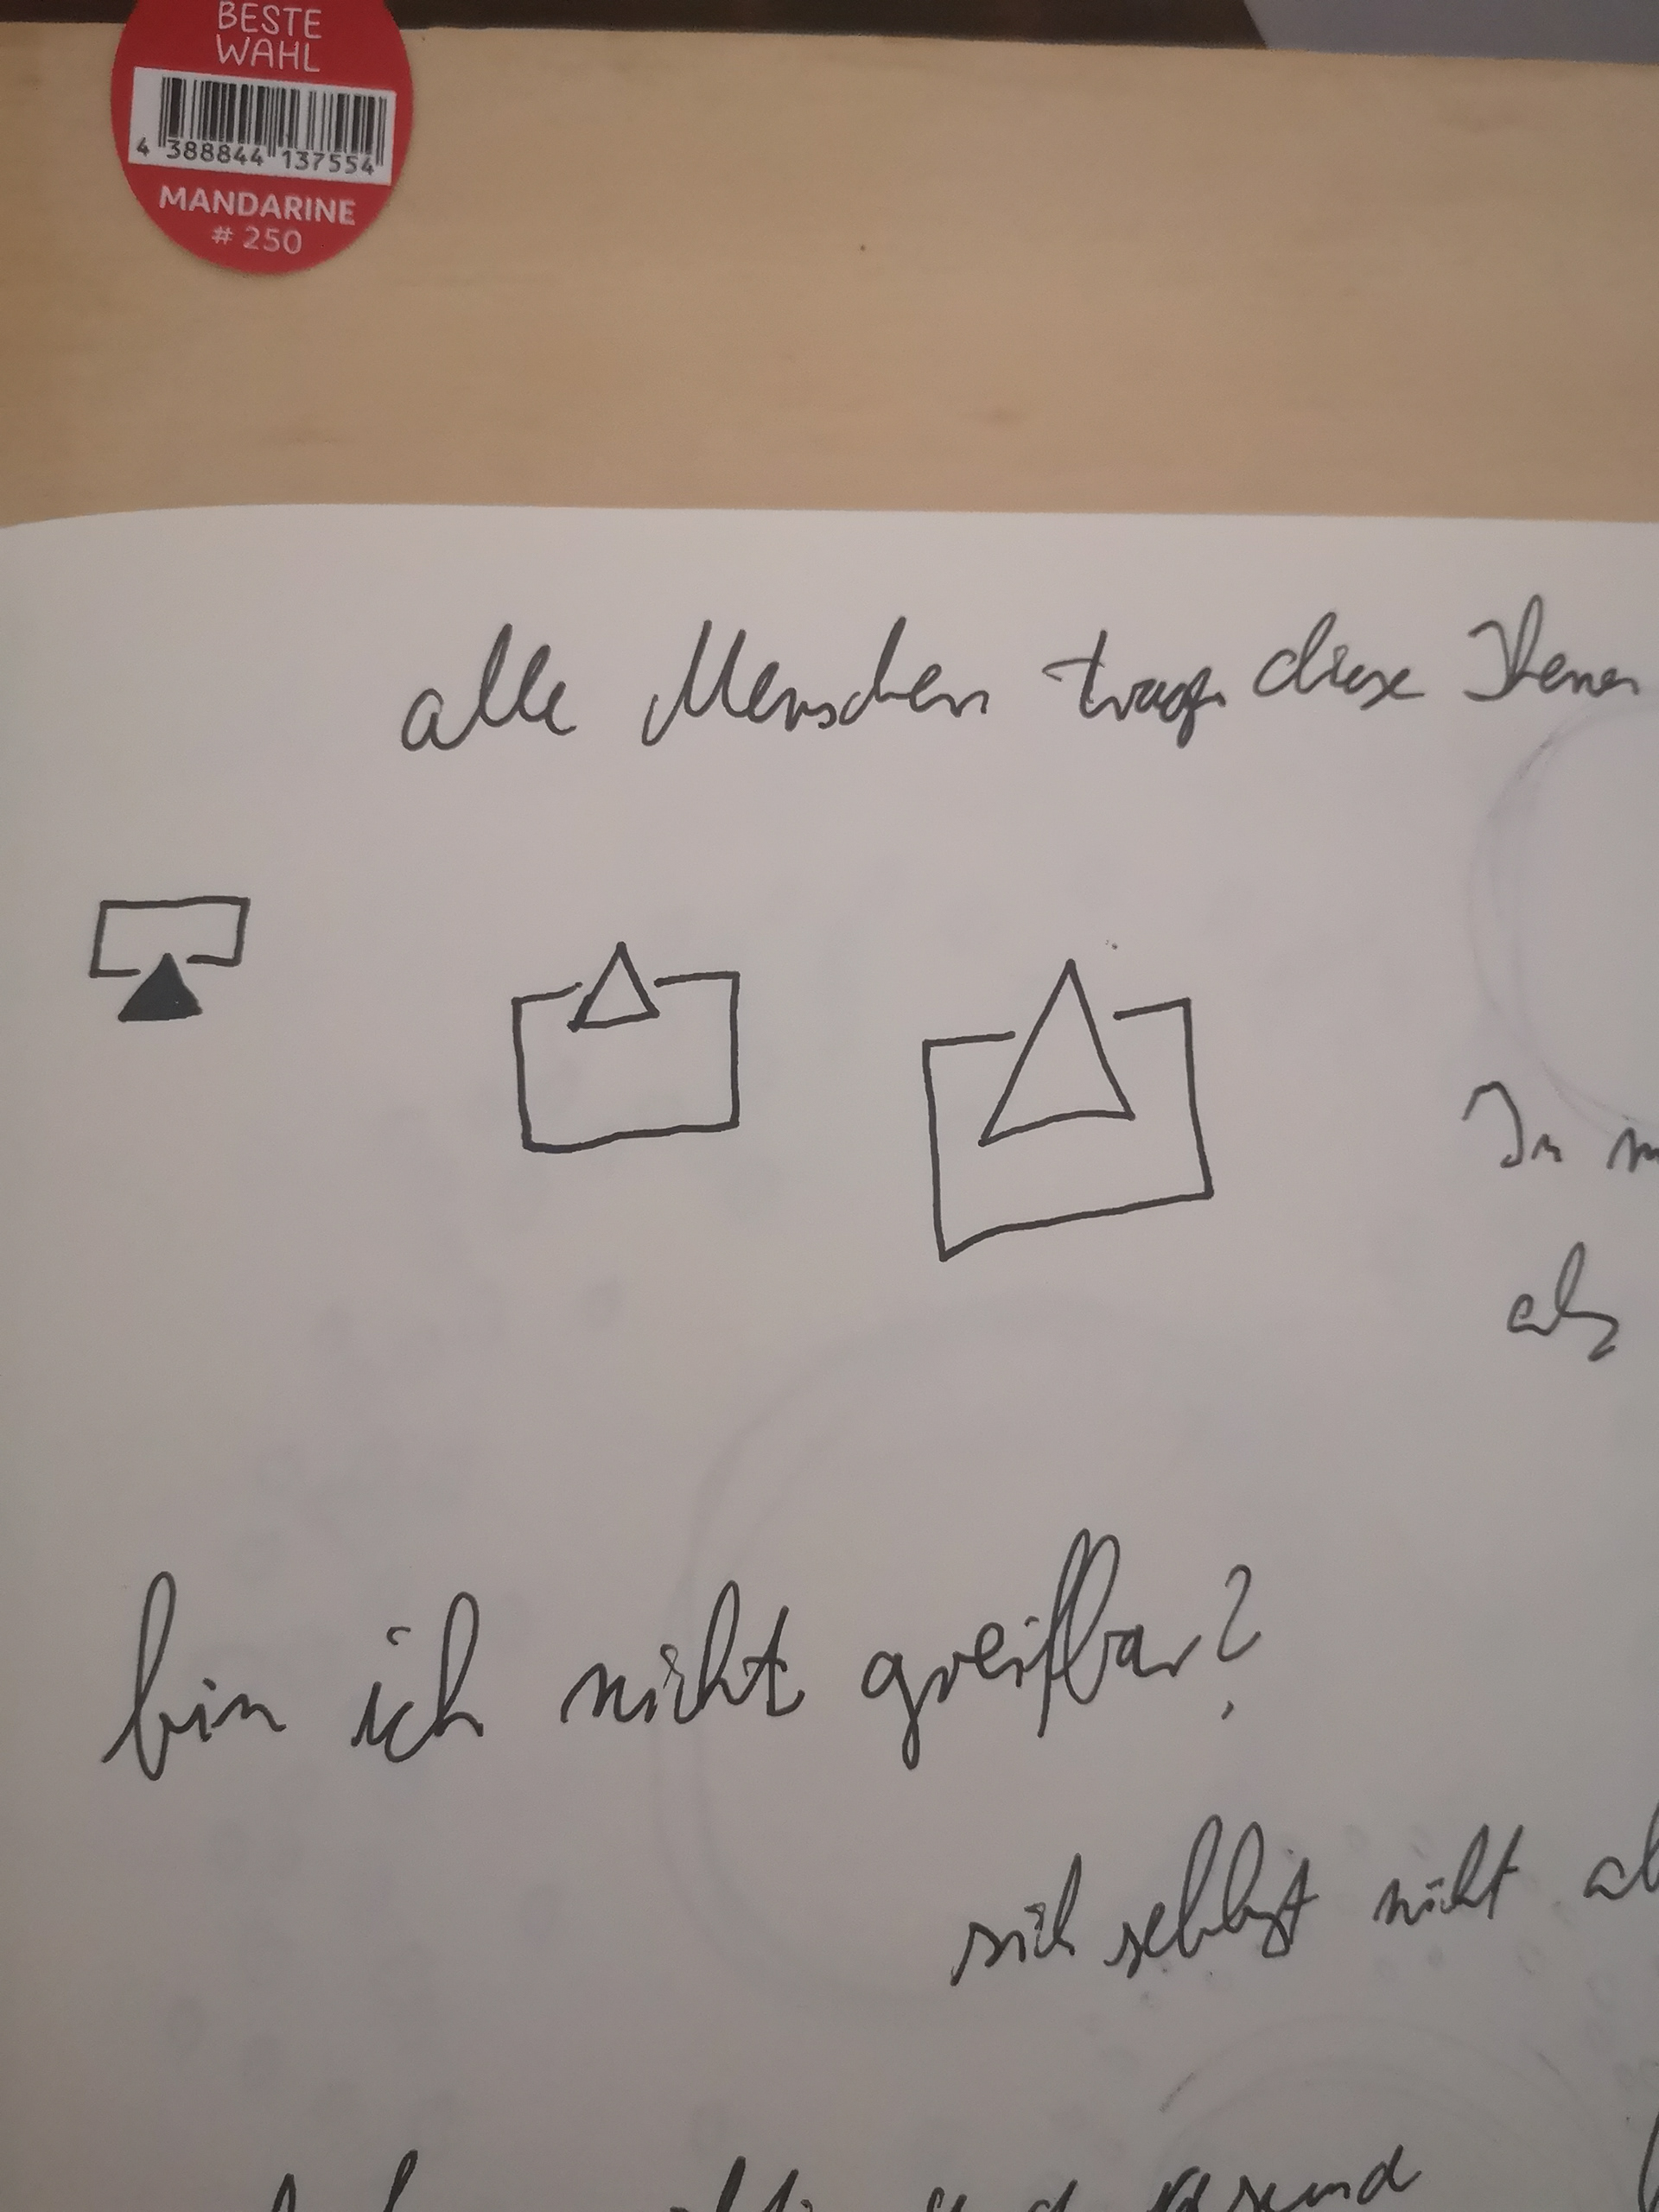 BESTE
WAHL
4 388844 137554
MANDARINE
# 250
alle Menschen tragen diese Themen
In m
als
bin ich nicht greifbar?
mich selbst nicht al